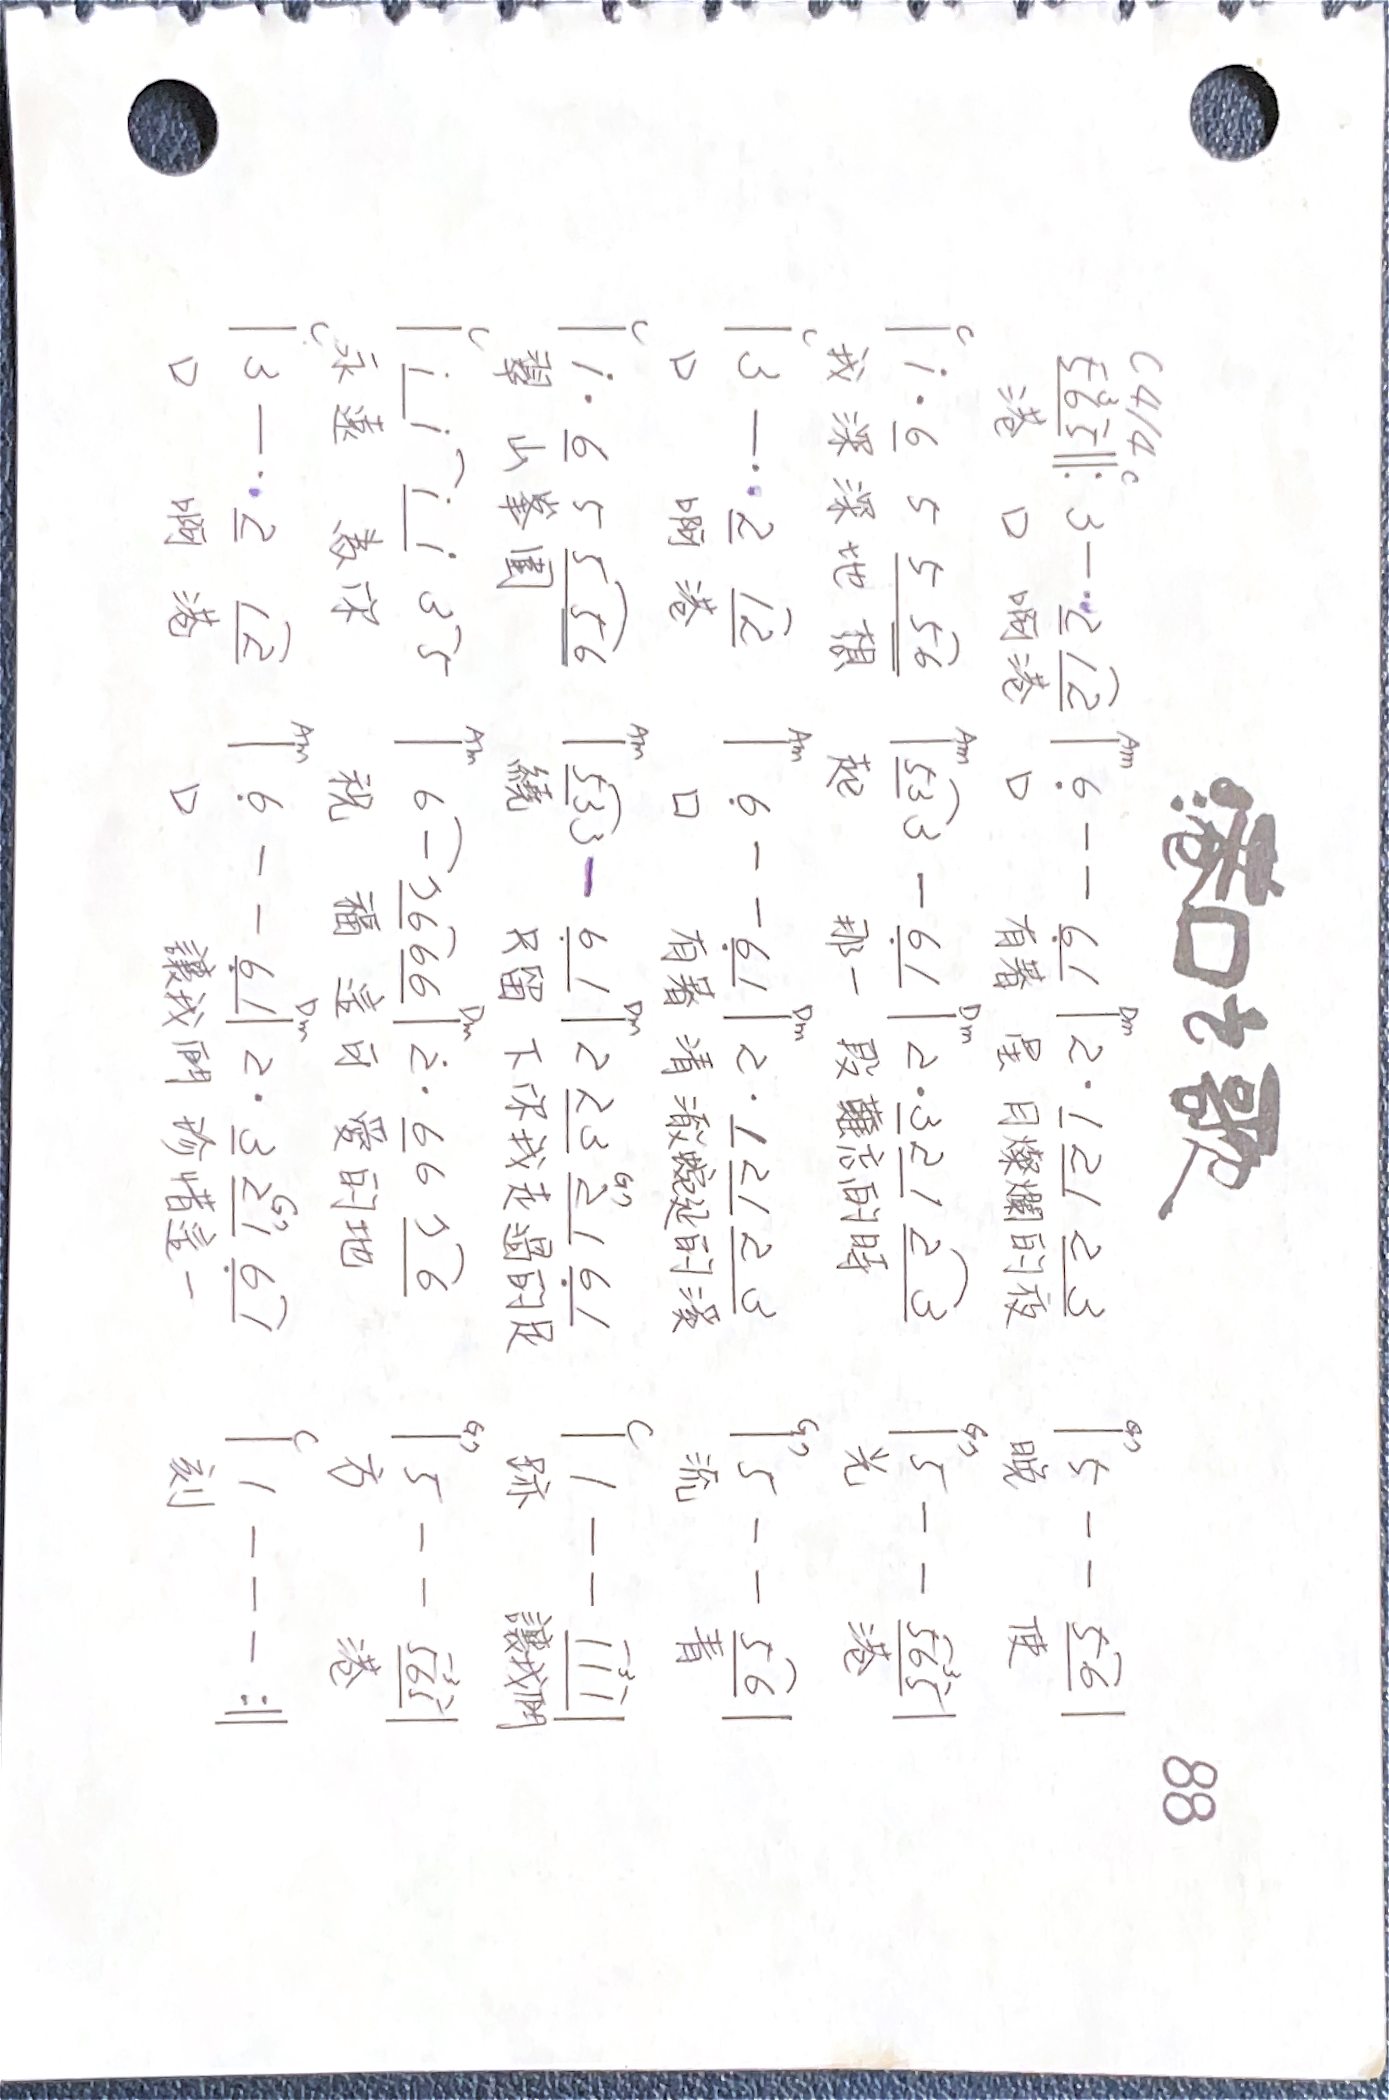 港口之歌
88
C 4/4
C Am Dm G7
565 ‖: 3 — · 2 12 | 6 - - 61 | 2 · 1 21 2 3 | 5 - - 56 |
港 口 啊港 口 有著 星 月燦爛的夜 晚 使
C Am Dm G7
| i · 6 5 5 56 | 533 - 61 | 2 · 3 21 2 3 | 5 - - 565 |
我 深 深 地 想 起 那一 段難忘的時 光 港
C Am Dm G7
| 3 — · 2 12 | 6 - - 61 | 2 · 1 21 2 3 | 5 - - 56 |
口 啊 港 口 有著 清 澈蜿延的溪 流 青
C Am Dm G7 C
| i · 6 5 5 56 | 533 - 61 | 2 23 21 61 | 1 - - 111 |
翠 山 峯 圍 繞 只留 下你我走過的足 跡 讓我們
C Am Dm G7
| i i i i 3 5 | 6 - 7666 | 2 · 6 6 7 6 | 5 - - 565 |
永 遠 為 你 祝 福 這 可 愛 的 地 方 港
C Am Dm G7 C
| 3 — · 2 12 | 6 - - 61 | 2 · 3 21 61 | 1 - - - :‖
口 啊 港 口 讓我們 珍惜這一 刻